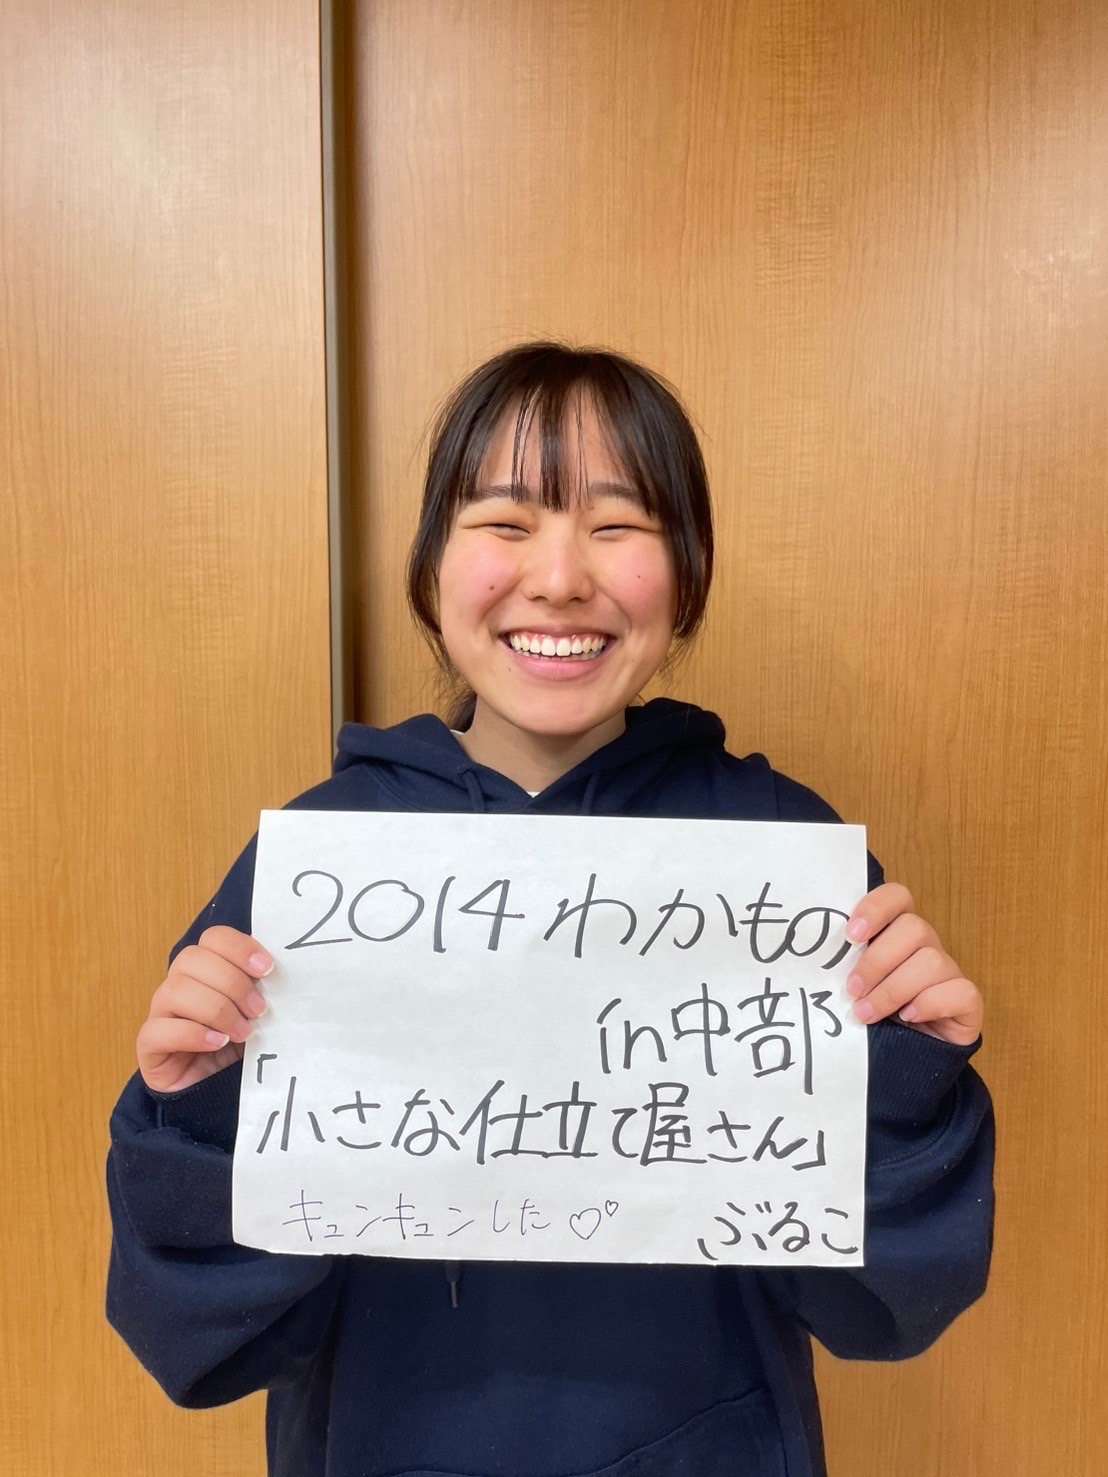 2014 わかもの
in中部
「小さな仕立て屋さん」
キュンキュンした♡♡ ぶるこ